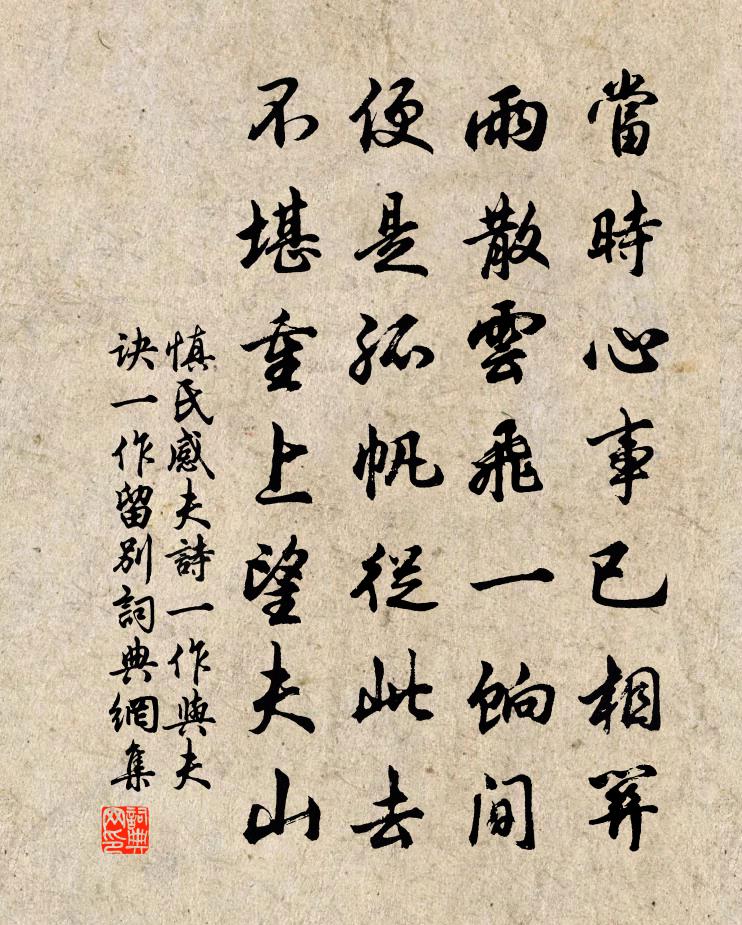 當時心事已相關
雨散雲飛一餉間
便是孤帆從此去
不堪重上望夫山
慎氏感夫詩一作與夫
訣一作留別詞典網集
詞典
网印